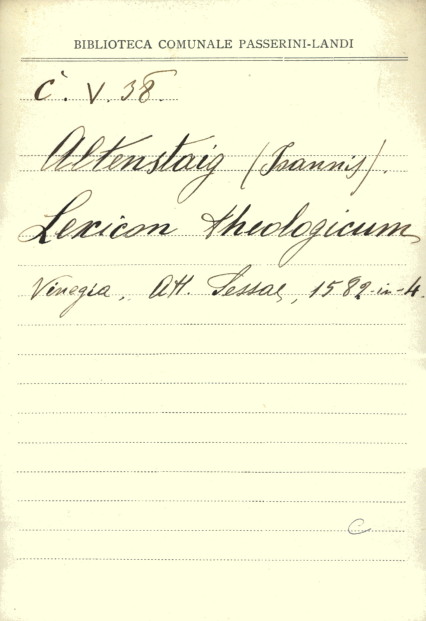 BIBLIOTECA COMUNALE PASSERINI-LANDI
C. V. 38.
Altenstaig (Joannis).
Lexicon theologicum
Venegia, Sessae, 1582 - in - 4.
C